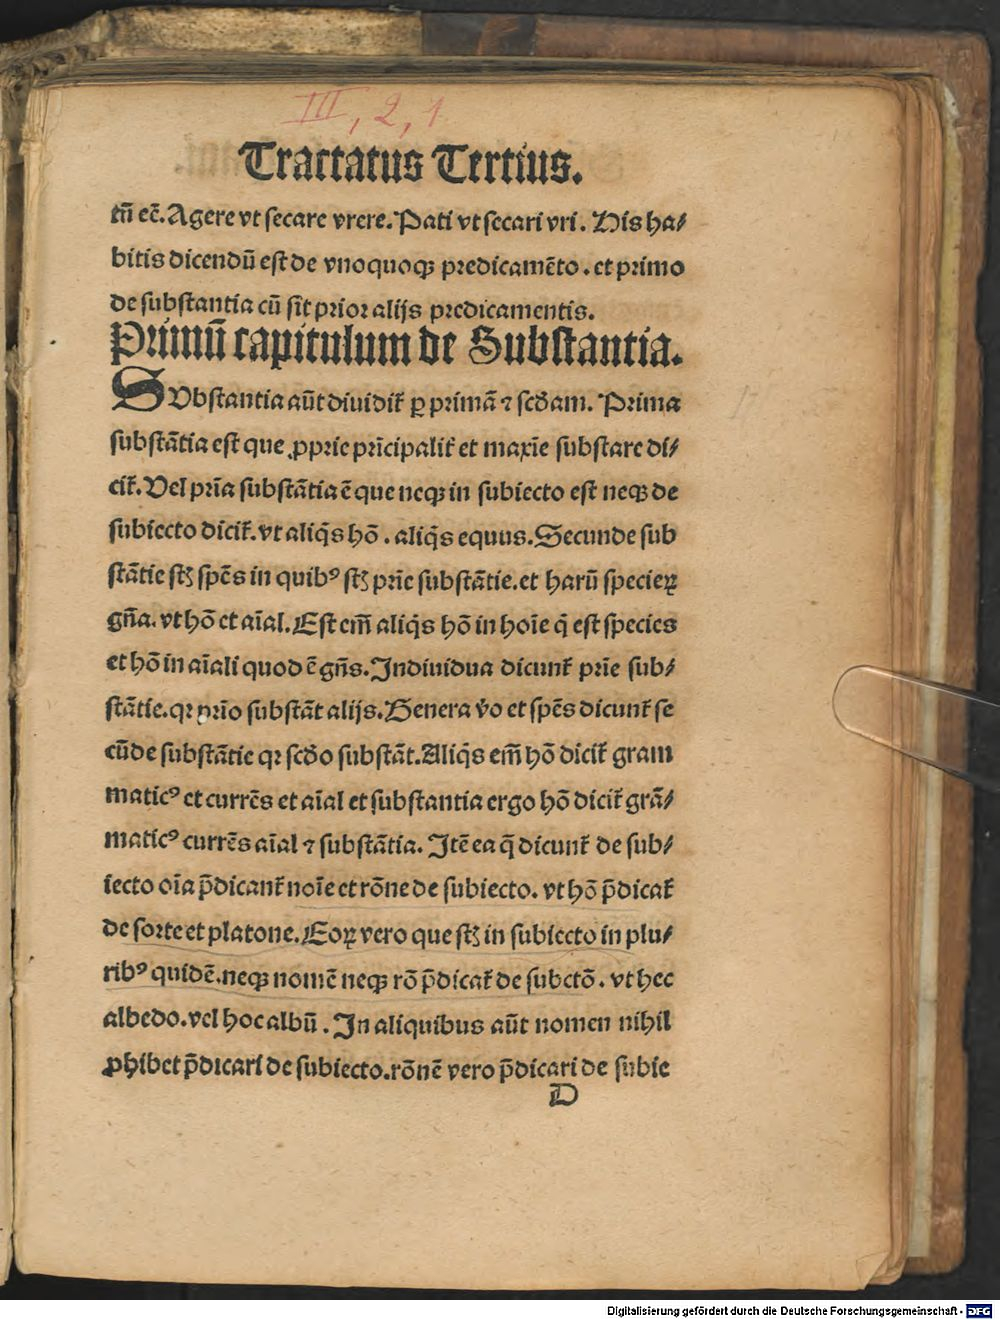 III, 2, 1
Tractatus Tertius.
tū ec̄. Agere vt secare vrere. Pati vt secari vri. His ha⸗
bitis dicendū est de vnoquoqꝫ predicamēto. et primo
de substantia cū sit prior alijs predicamentis.
Primū capitulum de Substantia.
SVbstantia aūt diuidit̄ ꝑ primā ⁊ scd̄am. Prima
substātia est que ꝓprie prīcipalit̄ et maxīe substare di⸗
cit̄. Vel prīa substātia ē que neqꝫ in subiecto est neqꝫ de
subiecto dicit̄. vt aliq̄s hō. aliq̄s equus. Secunde sub
stātie st̄ꝫ spēs in quibꝰ st̄ꝫ prīe substātie. et harū specieꝝ
gn̄a. vt hō et aīal. Est em̄ aliq̄s hō in hoīe q̄ est species
et hō in aīali quod ē gn̄s. Indiuidua dicunt̄ prīe sub⸗
stātie. qꝛ prīo substāt alijs. Genera v̄o et spēs dicunt̄ se
cūde substātie qꝛ scd̄o substāt. Aliq̄s em̄ hō dicit̄ gram
maticꝰ et currēs et aīal et substantia ergo hō dicit̄ grā⸗
maticꝰ currēs aīal ⁊ substātia. Itē ea q̄ dicunt̄ de sub⸗
iecto oīa p̄dicant̄ noīe et rōne de subiecto. vt hō p̄dicat̄
de sorte et platone. Eoꝝ vero que st̄ꝫ in subiecto in plu⸗
ribꝰ quidē. neqꝫ nomē neqꝫ rō p̄dicat̄ de subctō. vt hec
albedo. vel hoc albū. In aliquibus aūt nomen nihil
ꝓhibet p̄dicari de subiecto. rōnē vero p̄dicari de subie
D
Digitalisierung gefördert durch die Deutsche Forschungsgemeinschaft - DFG